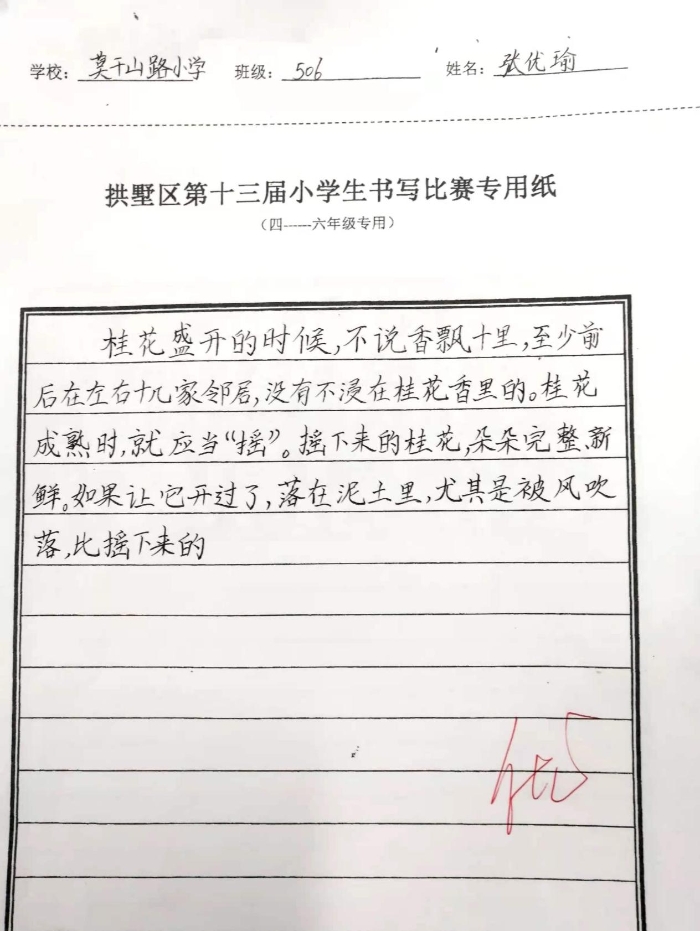 学校：莫干山路小学 班级：506 姓名：张优瑜
拱墅区第十三届小学生书写比赛专用纸
（四------六年级专用）
桂花盛开的时候，不说香飘十里，至少前
后在左右十几家邻居，没有不浸在桂花香里的。桂花
成熟时，就应当“摇”。摇下来的桂花，朵朵完整、新
鲜。如果让它开过了，落在泥土里，尤其是被风吹
落，比摇下来的